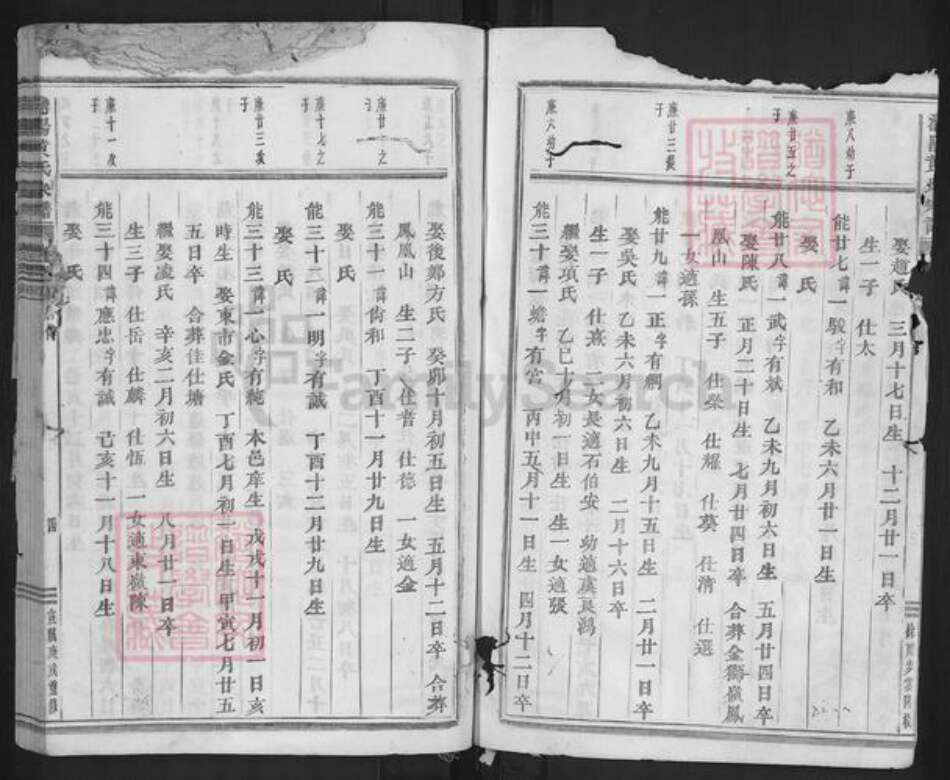 廉八幼子
廉廿五之子
廉廿三長子
廉六幼子
娶趙氏 三月十七日生 十二月廿一日卒
生一子 仕太
能廿七諱一駿字有和 乙未六月廿一日生
娶 氏
能廿八諱一武字有斌 乙未九月初六日生 五月廿四日卒
娶陳氏 正月二十日生 七月廿四日卒 合葬金獅嶺鳳
凰山 生五子 仕榮 仕耀 仕葵 仕清 仕選
一女適孫
能廿九諱一正字有綱 乙未九月十五日生 二月廿一日卒
娶吳氏 乙未六月初六日生 二月十六日卒
生一子 仕熹 二女長適石伯安 幼適虞良鴻
繼娶項氏 乙巳十月初一日生 生一女適張
能三十諱一蟾字有宮 丙申五月十一日生 四月十二日卒
廉廿一之子
廉十七之子
廉廿三次子
廉十一次子
娶後鄭方氏 癸卯十月初五日生 五月十二日卒 合葬
鳳凰山 生二子 仕耆 仕德 一女適金
能三十一諱尚和 丁酉十一月廿九日生
娶 氏
能三十二諱一明字有誠 丁酉十二月廿九日生
娶 氏
能三十三諱一心字有純 本邑庠生 戊戌十一月初一日亥
時生 娶東市金氏 丁酉七月初一日生 甲寅七月廿五
五日卒 合葬佳仕塘
繼娶凌氏 辛亥二月初六日生 八月廿一日卒
生三子 仕岳 仕麟 仕恆 一女適東嶺陳
能三十四諱應忠字有誠 己亥十一月十八日生
娶 氏
四
宣統庚戌重修